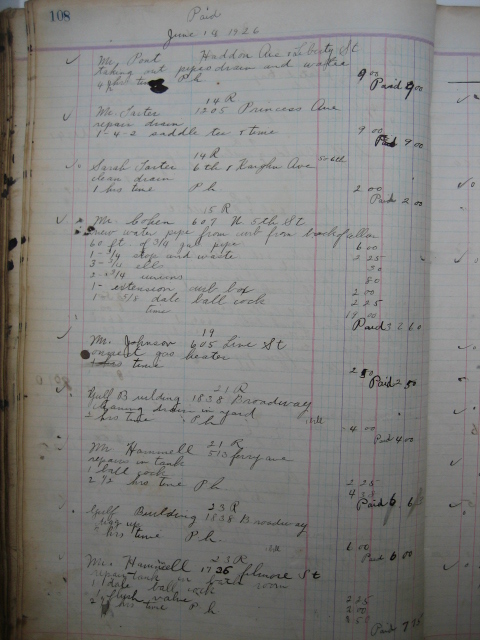 108
Paid
June 14 1926
Mr. Post Haddon Ave & Liberty St
taking out pipes drain and water
4 hrs time Ph 9 00 Paid 9 00
14 R
Mr. Farter 1205 Princess Ave
repair drain
1-4-2 saddle tee & time 9 00 Paid 9 00
14 R
Sarah Farter 6th & Kaighn Ave
clean drain
1 hrs time Ph 2 00
Paid 2 00
15 R
Mr. Cohen 607 N 5th St
new water pipe from curb from back of
60 ft of 3/4 galv pipe 6 00
1- 3/4 stop and waste 2 25
3- 3/4 ells 30
2- 3/4 unions 80
1- extension curb box 2 00
1- 5/8 ball cock 2 25
time 19 00
Paid 32 60
19
Mr. Johnson 605 Line St
connect gas heater
time 2 50
Paid 2 50
21 R
Gulf Building 1838 Broadway
drain in yard
2 hrs time Ph 4 00
Paid 4 00
21 R
Mr. Hammell 513 ferry ave
repair w tank
1 ball cock 2 25
2 1/2 hrs time Ph 4
Paid 6
23 R
Gulf Building 1838 Broadway
hrs time Ph 6 00
Paid 6 00
23 R
Mr. Hammell 1736 filmore St
repair tank in bath room
ball cock 2 25
1 flush valve 2 00
hrs time Ph 3 50
Paid 7